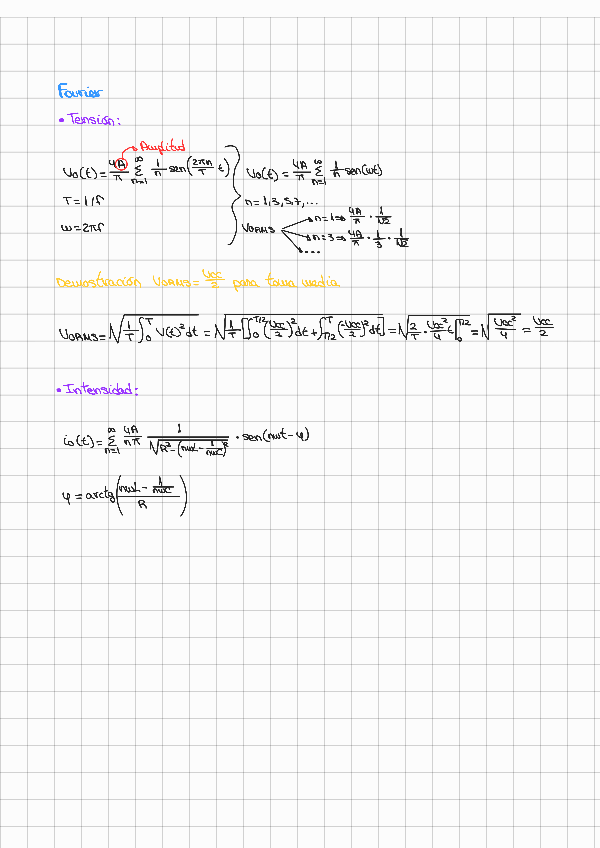 Fourier
• Tensión:
Amplitud
V₀(t) = 4A/π ∑_{n=1}^{∞} 1/n sen(2πn/T t)
T = 1/f
ω = 2πf
V₀(t) = 4A/π ∑_{n=1}^{∞} 1/n sen(ωt)
n = 1, 3, 5, 7, ...
V₀RMS
n = 1 ⇒ 4A/π · 1/√2
n = 3 ⇒ 4A/π · 1/3 · 1/√2
...
Demostración V₀RMS = Vcc/2 para toma media
V₀RMS = √(1/T ∫₀^T V(t)² dt) = √(1/T [∫₀^{T/2} (Vcc/2)² dt + ∫_{T/2}^T (-Vcc/2)² dt]) = √(2/T · Vcc²/4 t|₀^{T/2}) = √(Vcc²/4) = Vcc/2
• Intensidad:
i₀(t) = ∑_{n=1}^{∞} 4A/nπ 1/√(R² - (nωL - 1/nωC)²) · sen(nωt - φ)
φ = arctg((nωL - 1/nωC)/R)